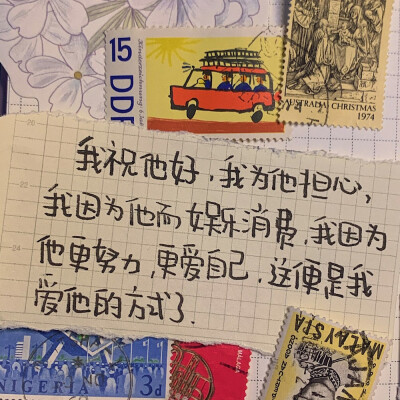 15
DDR
AUSTRALIA CHRISTMAS
1974
20
22
24
我祝他好,我为他担心,
我因为他而娱乐消费.我因为
他更努力,更爱自己.这便是我
爱他的方式了.
NIGERIA
3d
MALAYSIA